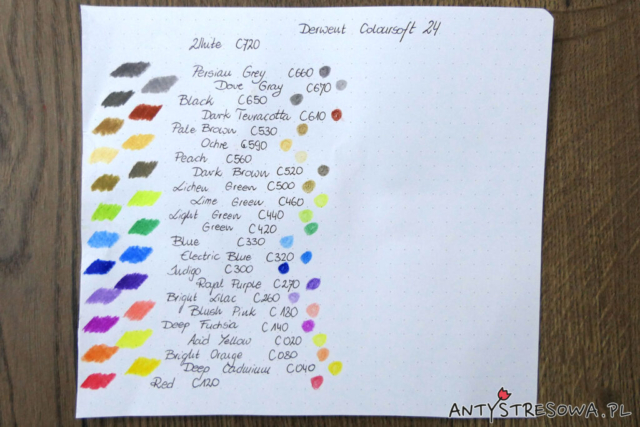 Derwent Coloursoft 24
White C720
Persian Grey C660
Dove Gray C670
Black C650
Dark Terracotta C610
Pale Brown C530
Ochre C590
Peach C560
Dark Brown C520
Lichen Green C500
Lime Green C460
Light Green C440
Green C420
Blue C330
Electric Blue C320
Indigo C300
Royal Purple C270
Bright Lilac C260
Blush Pink C180
Deep Fuchsia C140
Acid Yellow C020
Bright Orange C080
Deep Cadmium C040
Red C120
ANTYSTRESOWA.PL